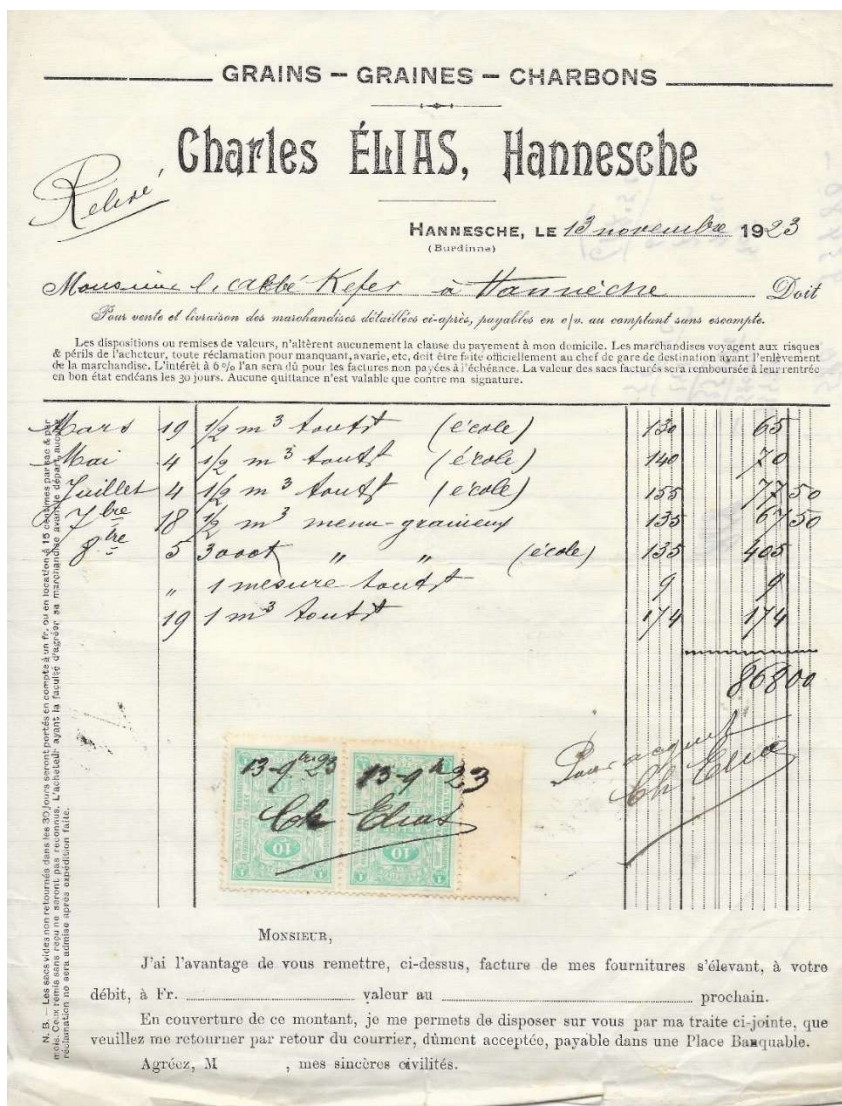 GRAINS – GRAINES – CHARBONS
Charles ÉLIAS, Hannesche
Relevé
HANNESCHE, LE 13 novembre 1923
(Burdinne)
Monsieur l'abbé Kefer à Hannèche Doit
Pour vente et livraison des marchandises détaillées ci-après, payables en e/v. au comptant sans escompte.
Les dispositions ou remises de valeurs, n'altèrent aucunement la clause du payement à mon domicile. Les marchandises voyagent aux risques
& périls de l'acheteur, toute réclamation pour manquant, avarie, etc, doit être faite officiellement au chef de gare de destination avant l'enlèvement
de la marchandise. L'intérêt à 6 % l'an sera dû pour les factures non payées à l'échéance. La valeur des sacs facturés sera remboursée à leur rentrée
en bon état endéans les 30 jours. Aucune quittance n'est valable que contre ma signature.
Mars 19 1/2 m³ (école) 130 65
Mai 4 1/2 m³ (école) 140 70
Juillet 4 1/2 m³ (école) 155 77 50
7bre 18 1/2 m³ menu-graineux 135 67 50
8bre 5 " " (école) 135 405
" 1 mesure 9 9
19 1 m³ 174 174
868 00
Pour acquit
Ch Elias
13-9bre 23 13-9b 23
Ch Elias
10 10
N. B. – Les sacs vides non retournés dans les 30 jours seront portés en compte à un fr. ou en location à 15 centimes par sac & par
mois. Ceux remis sans reçu ne seront pas reconnus. L'acheteur ayant la faculté d'agréer sa marchandise avant le départ, aucune
réclamation ne sera admise après expédition faite.
MONSIEUR,
J'ai l'avantage de vous remettre, ci-dessus, facture de mes fournitures s'élevant, à votre
débit, à Fr. valeur au prochain.
En couverture de ce montant, je me permets de disposer sur vous par ma traite ci-jointe, que
veuillez me retourner par retour du courrier, dûment acceptée, payable dans une Place Banquable.
Agréez, M , mes sincères civilités.